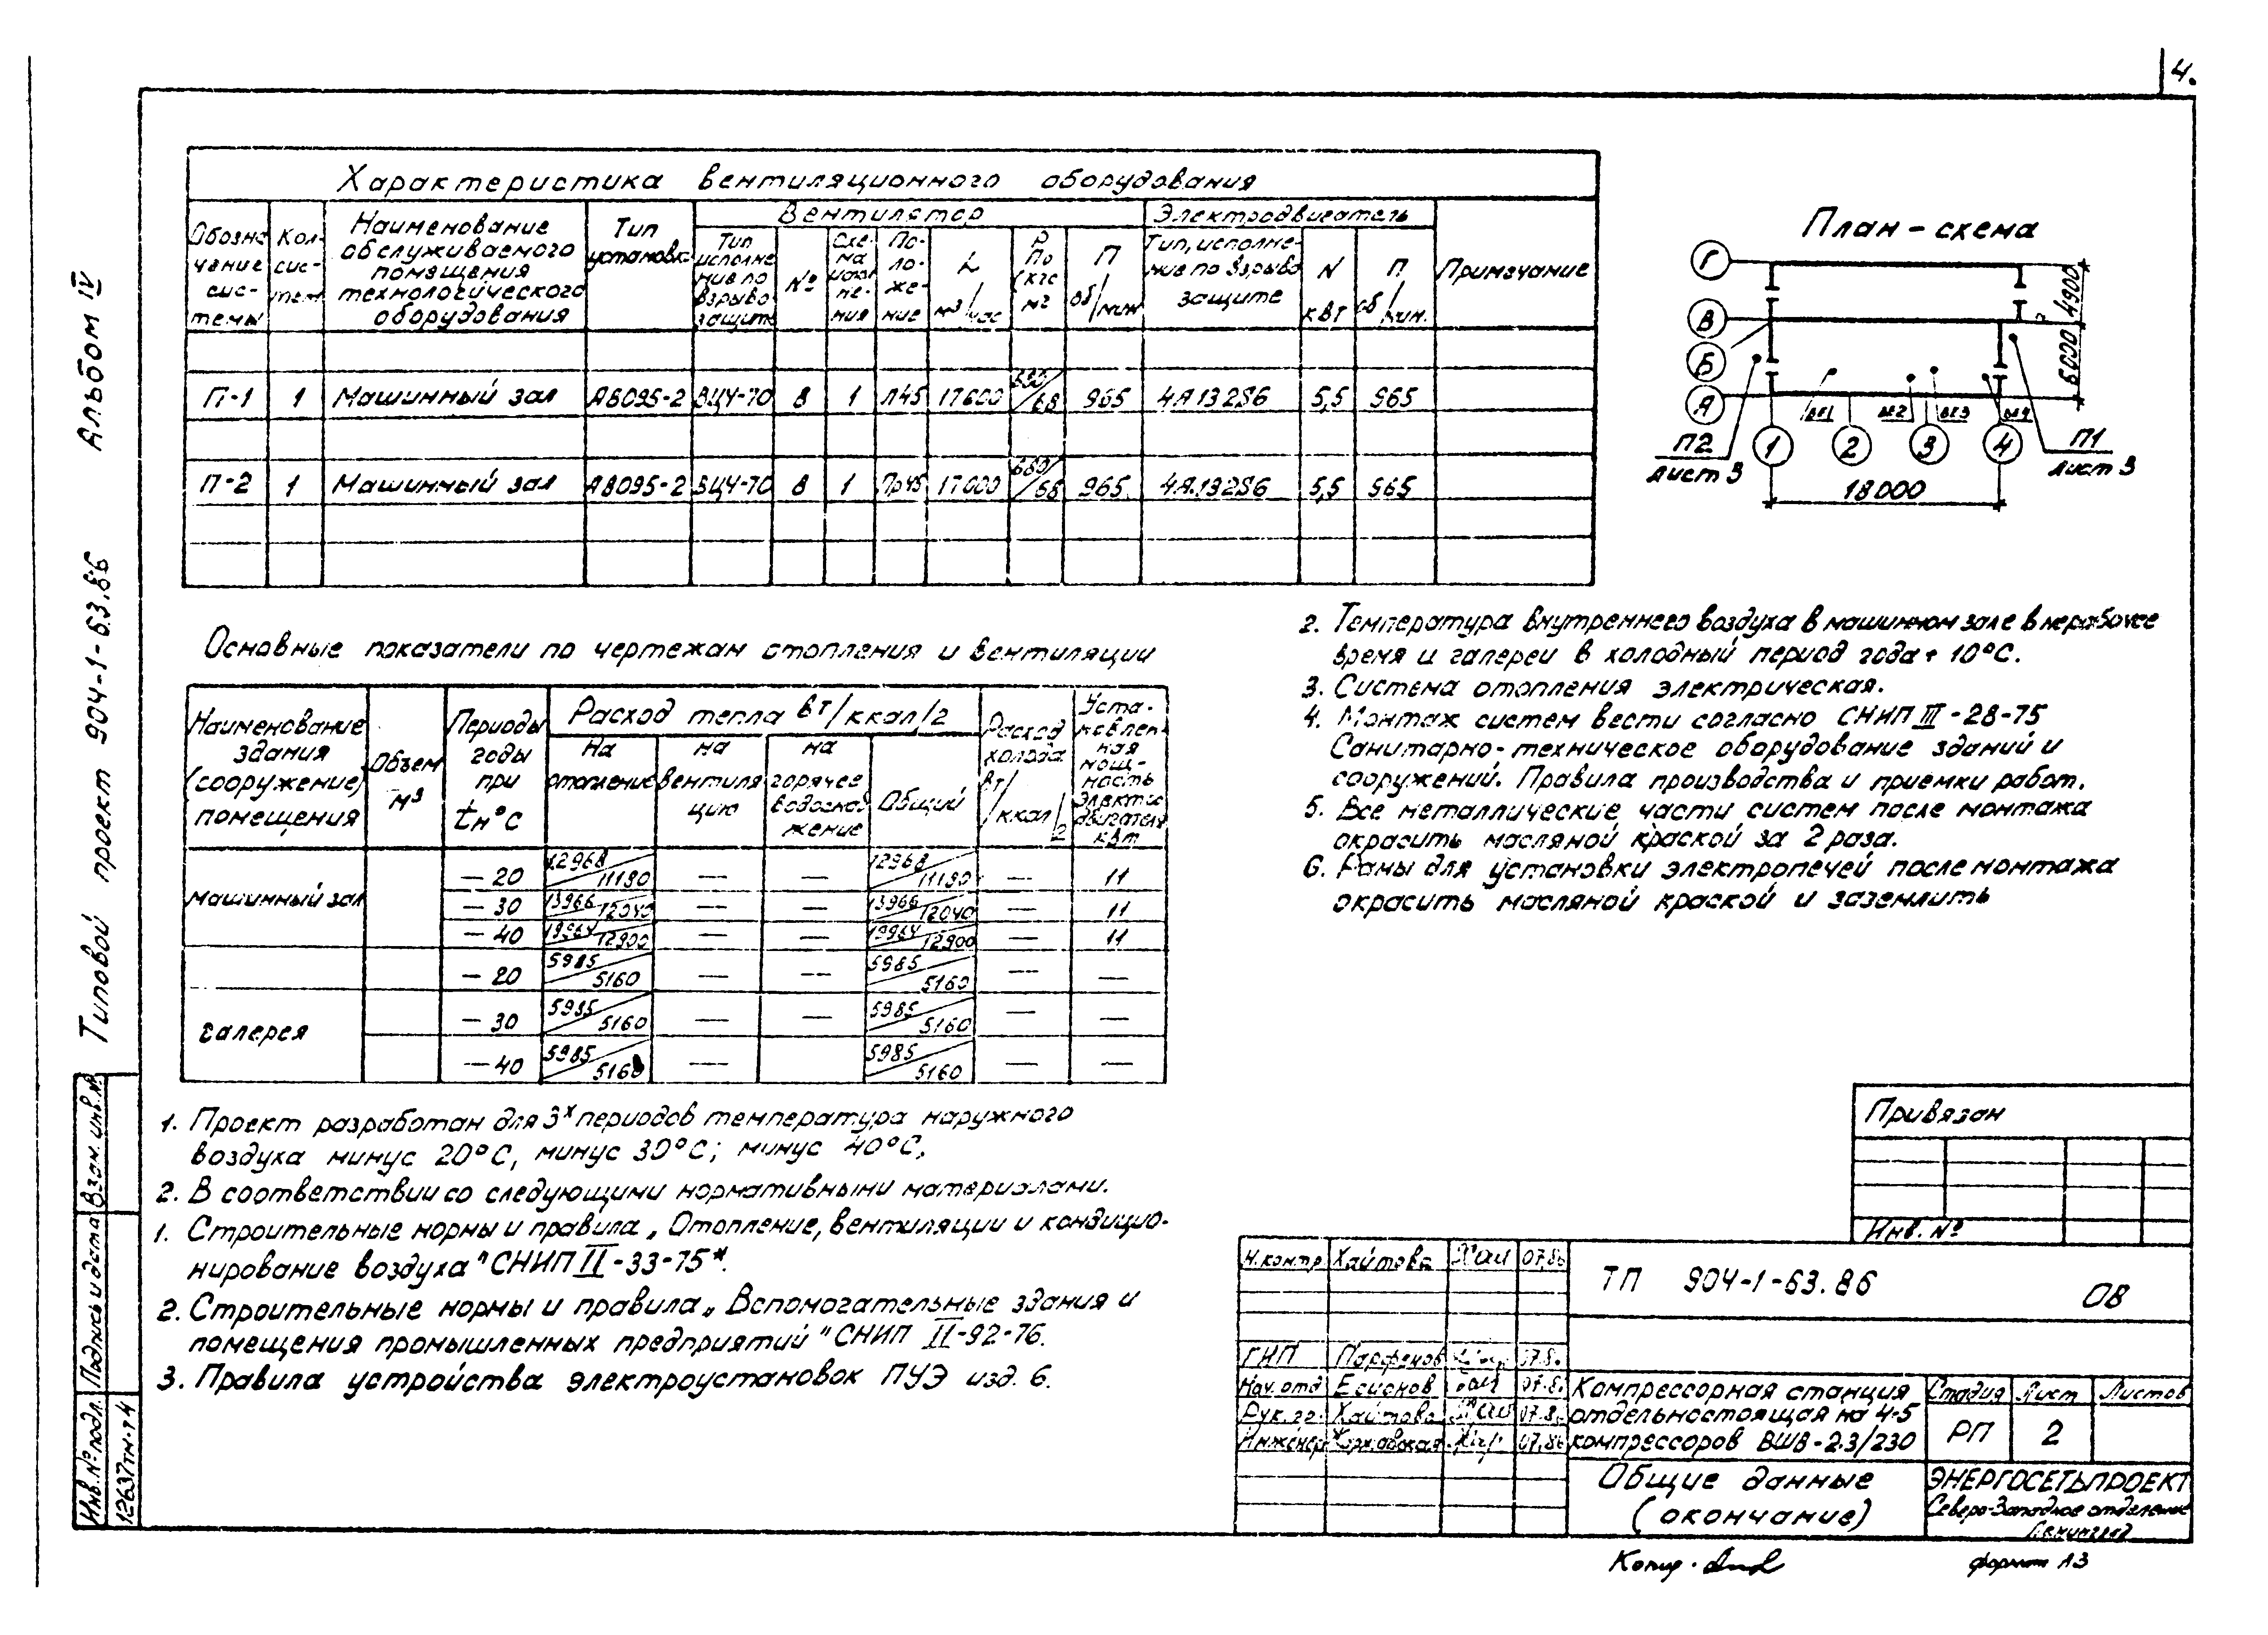 4.
Альбом IV
Типовой проект 904-1-63.86
Взам. инв. №
Подпись и дата
Инв. № подл.
12637тм-т4
Характеристика вентиляционного оборудования
Обозначение системы
Кол. систем
Наименование обслуживаемого помещения технологического оборудования
Тип установк.
Вентилятор
Тип исполнение по взрывозащите
№
Схема исполнения
Положение
L м³/час
Р По (кгс м2
П об/мин
Электродвигатель
Тип, исполнение по взрывозащите
N кВт
П об/мин.
Примечание
П-1 1 Машинный зал А8095-2 ВЦ4-70 8 1 Л45 17000 680/68 965 4А132S6 5,5 965
П-2 1 Машинный зал А8095-2 ВЦ4-70 8 1 Пр45 17000 680/68 965 4А132S6 5,5 965
План-схема
Г
В
Б
А
4900
6000
ВЕ1 ВЕ2 ВЕ3 ВЕ4
1 2 3 4
П2
Лист 3
П1
Лист 3
18000
Основные показатели по чертежам отопления и вентиляции
Наименование здания (сооружение) помещения
Объем м³
Периоды годы при tн°С
Расход тепла вт/ккал/г
На отопление
на вентиляцию
на горячее водоснабжение
Общий
Расход холода вт/ккал/г
Установленная мощность электродвигателя квт
машинный зал
— 20 12968/11180 — — 12968/11180 — 11
— 30 13966/12040 — — 13966/12040 — 11
— 40 19964/12900 — — 19964/12900 — 11
галерея
— 20 5985/5160 — — 5985/5160 — —
— 30 5985/5160 — — 5985/5160 — —
— 40 5985/5160 — 5985/5160 — —
1. Проект разработан для 3х периодов температура наружного
воздуха минус 20°С, минус 30°С; минус 40°С,
2. В соответствии со следующими нормативными материалами.
1. Строительные нормы и правила „Отопление, вентиляции и кондицио-
нирование воздуха" СНИП II-33-75*.
2. Строительные нормы и правила „Вспомогательные здания и
помещения промышленных предприятий" СНИП II-92-76.
3. Правила устройства электроустановок ПУЭ изд. 6.
2. Температура внутреннего воздуха в машинном зале в нерабочее
время и галереи в холодный период года + 10°С.
3. Система отопления электрическая.
4. Монтаж систем вести согласно СНИП III-28-75
Санитарно-техническое оборудование зданий и
сооружений. Правила производства и приемки работ.
5. Все металлические части систем после монтажа
окрасить масляной краской за 2 раза.
6. Рамы для установки электропечей после монтажа
окрасить масляной краской и заземлить
Привязан
Инв. №
Н.контр Хаитова 07.86
ГИП Парфенов 07.8
Нач.отд Есинов 07.8
Рук.гр. Хаитова 07.8
Инженер 07.86
ТП 904-1-63.86 ОВ
Компрессорная станция
отдельностоящая на 4-5
компрессоров ВШВ-2.3/230
Стадия Лист Листов
РП 2
Общие данные
(окончание)
ЭНЕРГОСЕТЬПРОЕКТ
Северо-Западное отделение
Ленинград
Копир.
формат А3